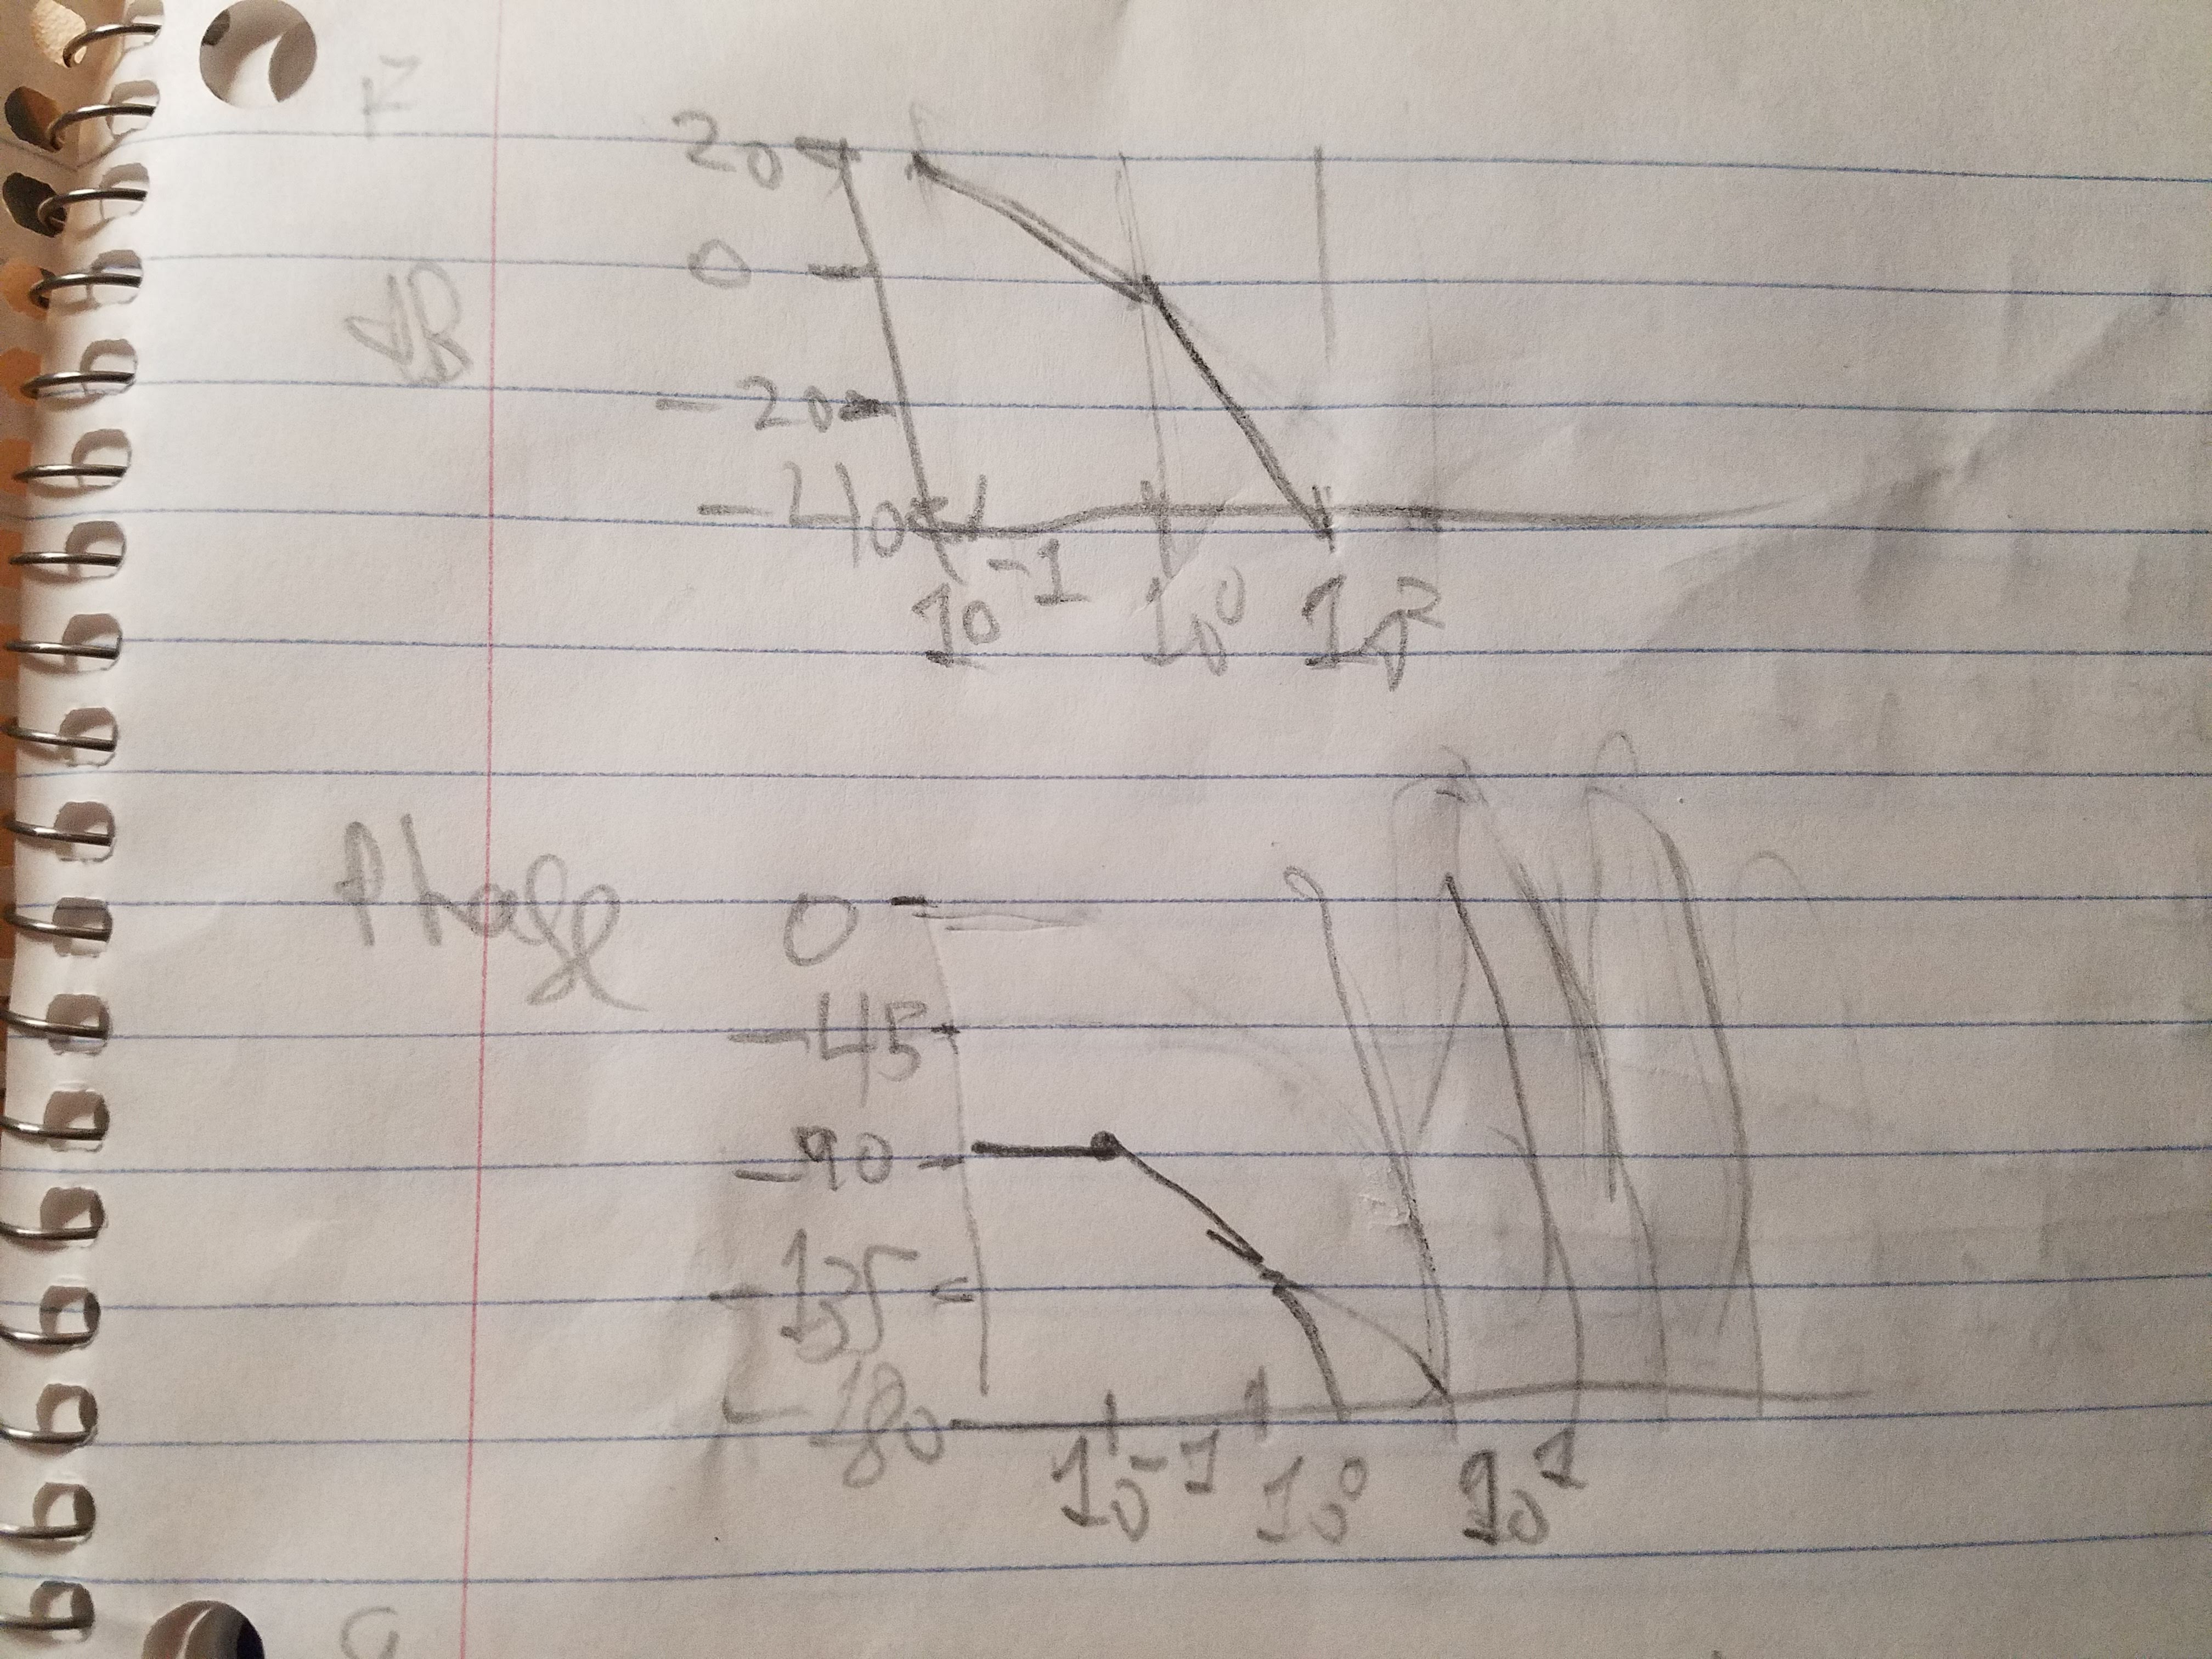 dB
20
0
-20
-40
10^-1
10^0
10^1
Phase
0
-45
-90
-135
-180
10^-1
10^0
10^1